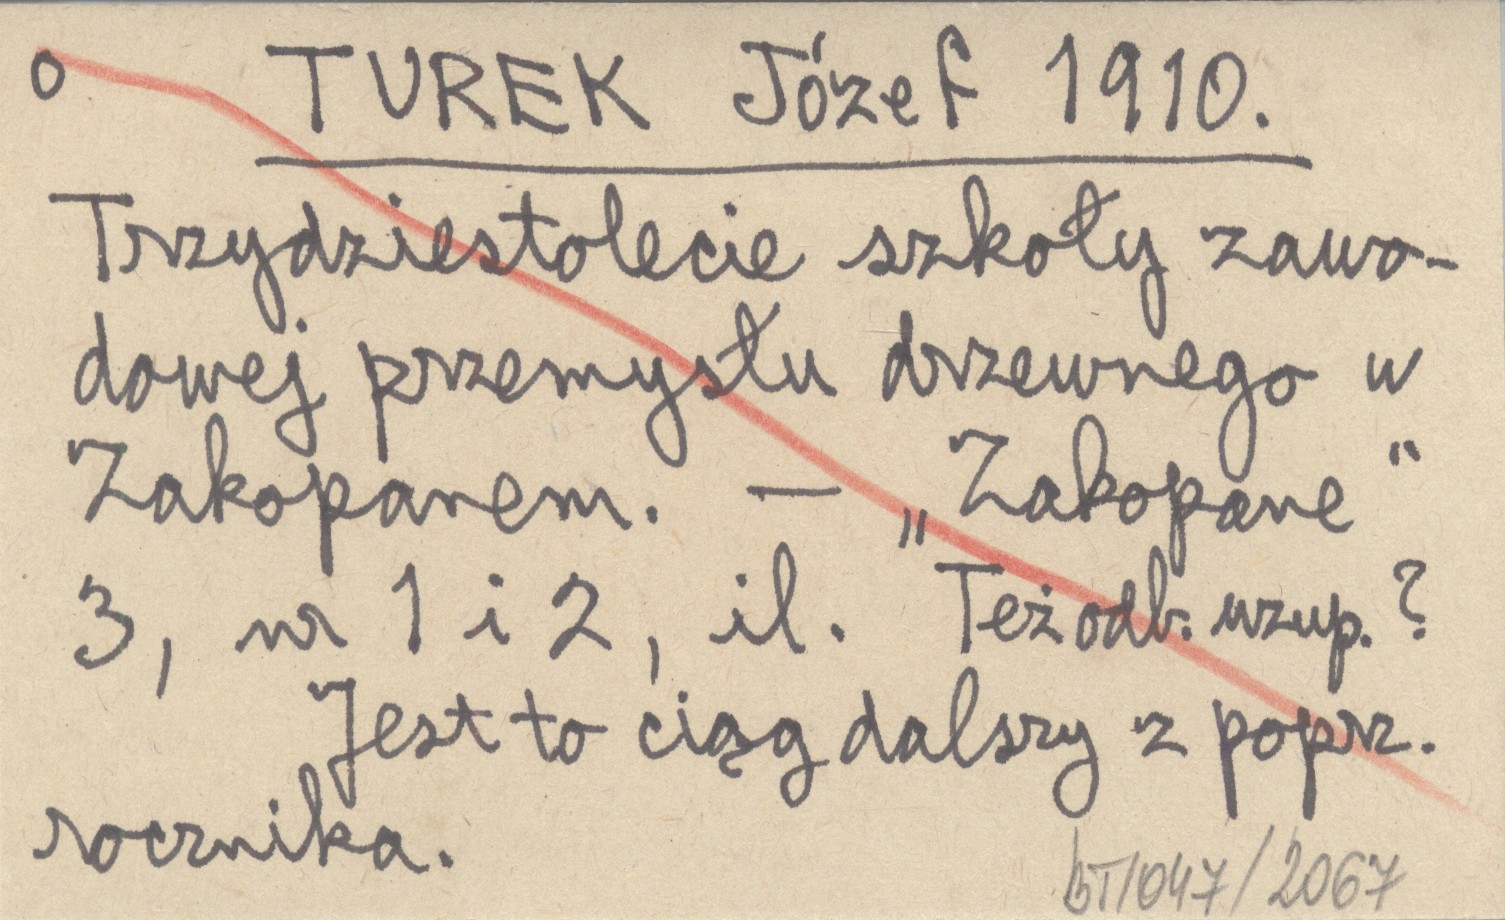 o TUREK Józef 1910.
Trzydziestolecie szkoły zawo-
dowej przemysłu drzewnego w
Zakopanem. — „Zakopane"
3, nr 1 i 2, il. Też odb. uzup.?
Jest to ciąg dalszy z poprz.
rocznika.
BT/047/2067